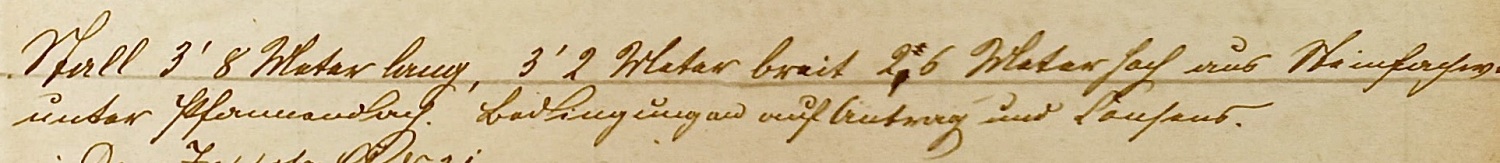 Stall 3' 8 Meter lang, 3' 2 Meter breit 2' 6 Meter hoch aus Steinfachw.
unter Pfannendach. Bedingungen auf Antrag und Consens.